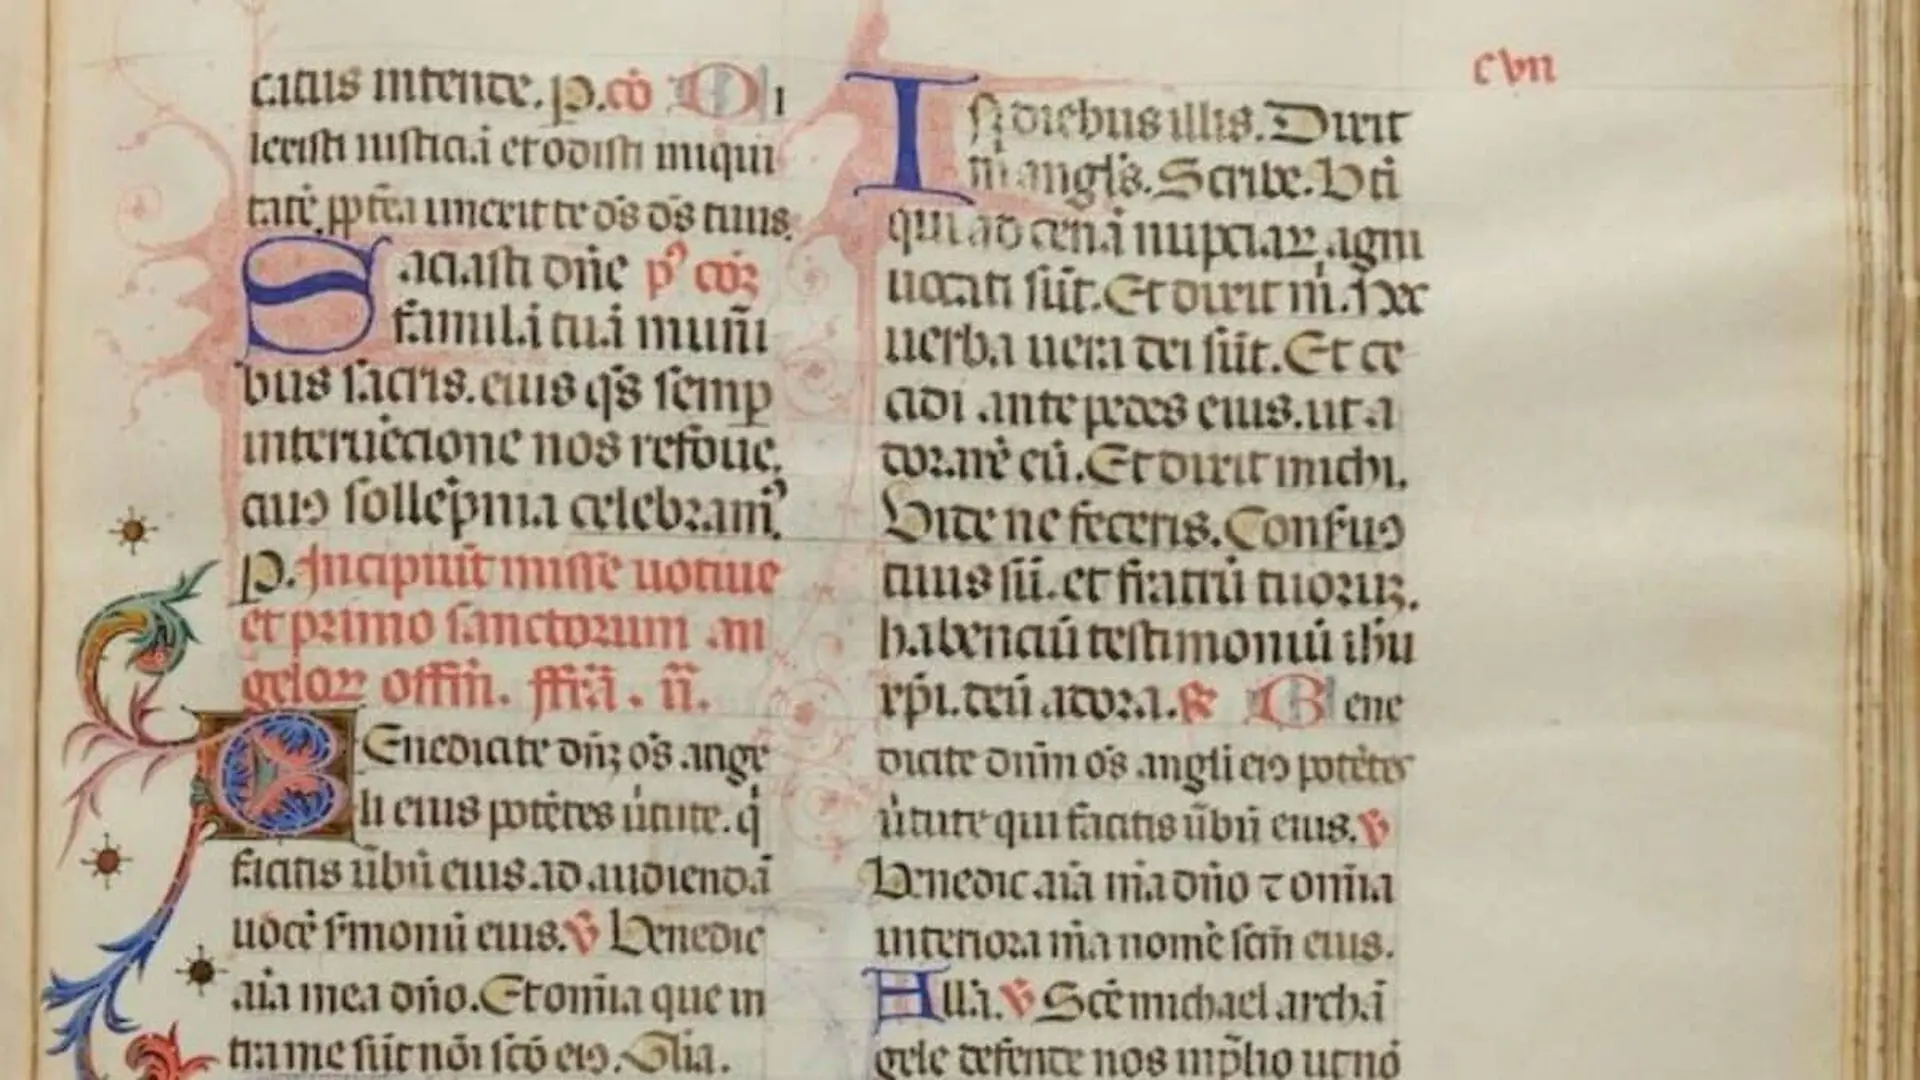 citus intente. p. cō Di
lexisti iustitiā et odisti iniqui
tatē, ꝓptea unxit te ds̄ ds̄ tuus.
Saciasti dn̄e pꝰ cōꝫ
familiā tuā muñi
bus sacris. eius qs̄ semꝑ
interuēcione nos refoue,
cuiꝯ sollēpnia celebramꝰ.
p. Incipiūt misse uotiue
et primo sanctorum an
geloꝝ offm̄. ffiā. ii.
Benedicite dn̄ꝫ os̄ ange
li eius potētes u̇tute. q̇
facitis ūbū eius. ad audiendā
uōcē s̄monū eius. ℣ Benedic
aīa mea dn̄o. Et om̄ia que in
tra me sūt nōi scō eiꝯ. Glīa.
cvii
In diebus illis. Dixit
m̄ angl̄s. Scribe. Bt̄i
qui ad cenā nupciaꝝ agni
uocati sūt. Et dixit m̄. Hec
uerba uera dei sūt. Et ce
cidi ante pedes eius. ut a
dorarē eū. Et dixit michi.
Vide ne feceris. Conſuꝯ
tuus sū. et fratrū tuoruꝫ.
habenciū testimoniū ihu
xp̄i. deū adora. ꝶ Bene
dicite dnm̄ os̄ angli eiꝯ potētes
u̇tute qui facitis ūbū eius. ℣
Benedic aīa m̄a dn̄o ⁊ om̄ia
interiora m̄a nomē scm̄ eius.
Allā. ℣ Scē michael archā
gele defende nos in p̄lio ut nō